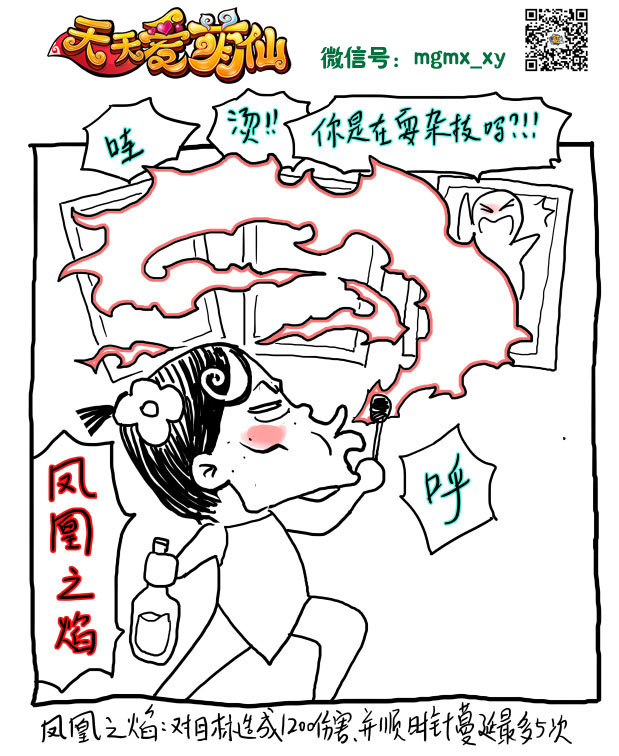 天天爱萌仙
微信号：mgmx_xy
哇
烫!!
你是在耍杂技吗?!!!
呼
凤凰之焰
凤凰之焰:对目标造成1200伤害、并顺时针蔓延最多5次